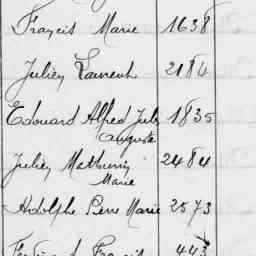 Francis Marie 1638
Julien Laurent 2184
Edouard Alfred Jules 1835
Auguste
Julien Mathurin 2484
Marie
Adolphe Pierre Marie 2573
Francis 443